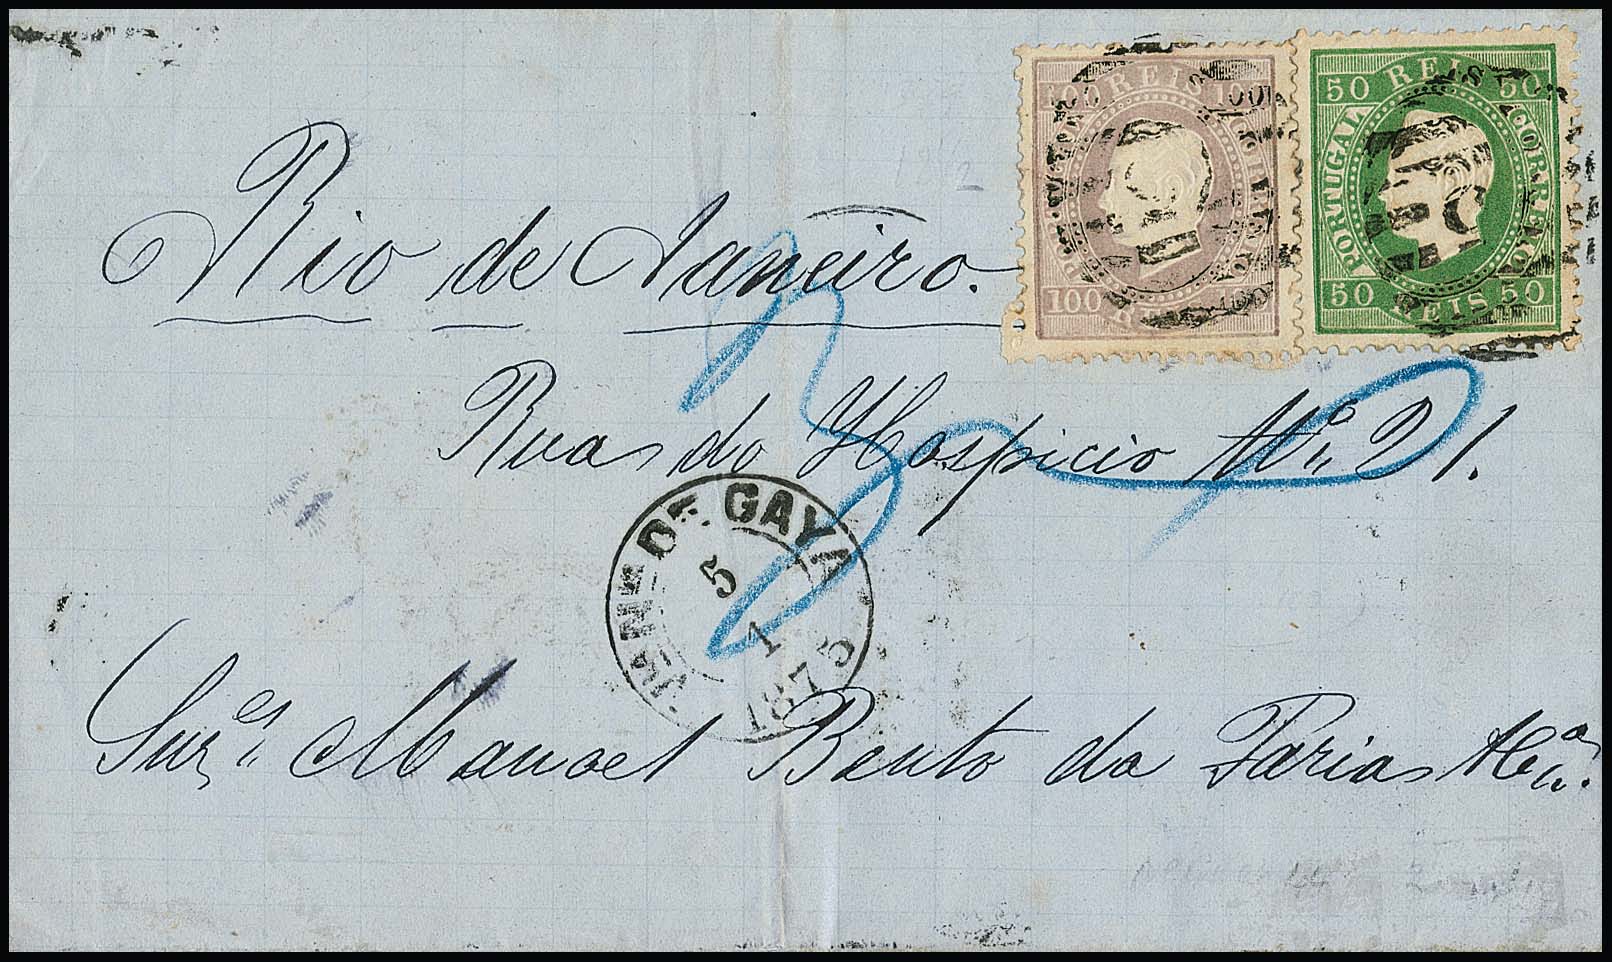 100 REIS 100
PORTUGAL
CORREIO
100 REIS 100
50 REIS 50
PORTUGAL
CORREIO
50 REIS 50
Rio de Janeiro.
Rua do Hospicio Nº 21.
DE GAYA
5
1
1875
Snr.es Manoel Bento da Faria & Cª.